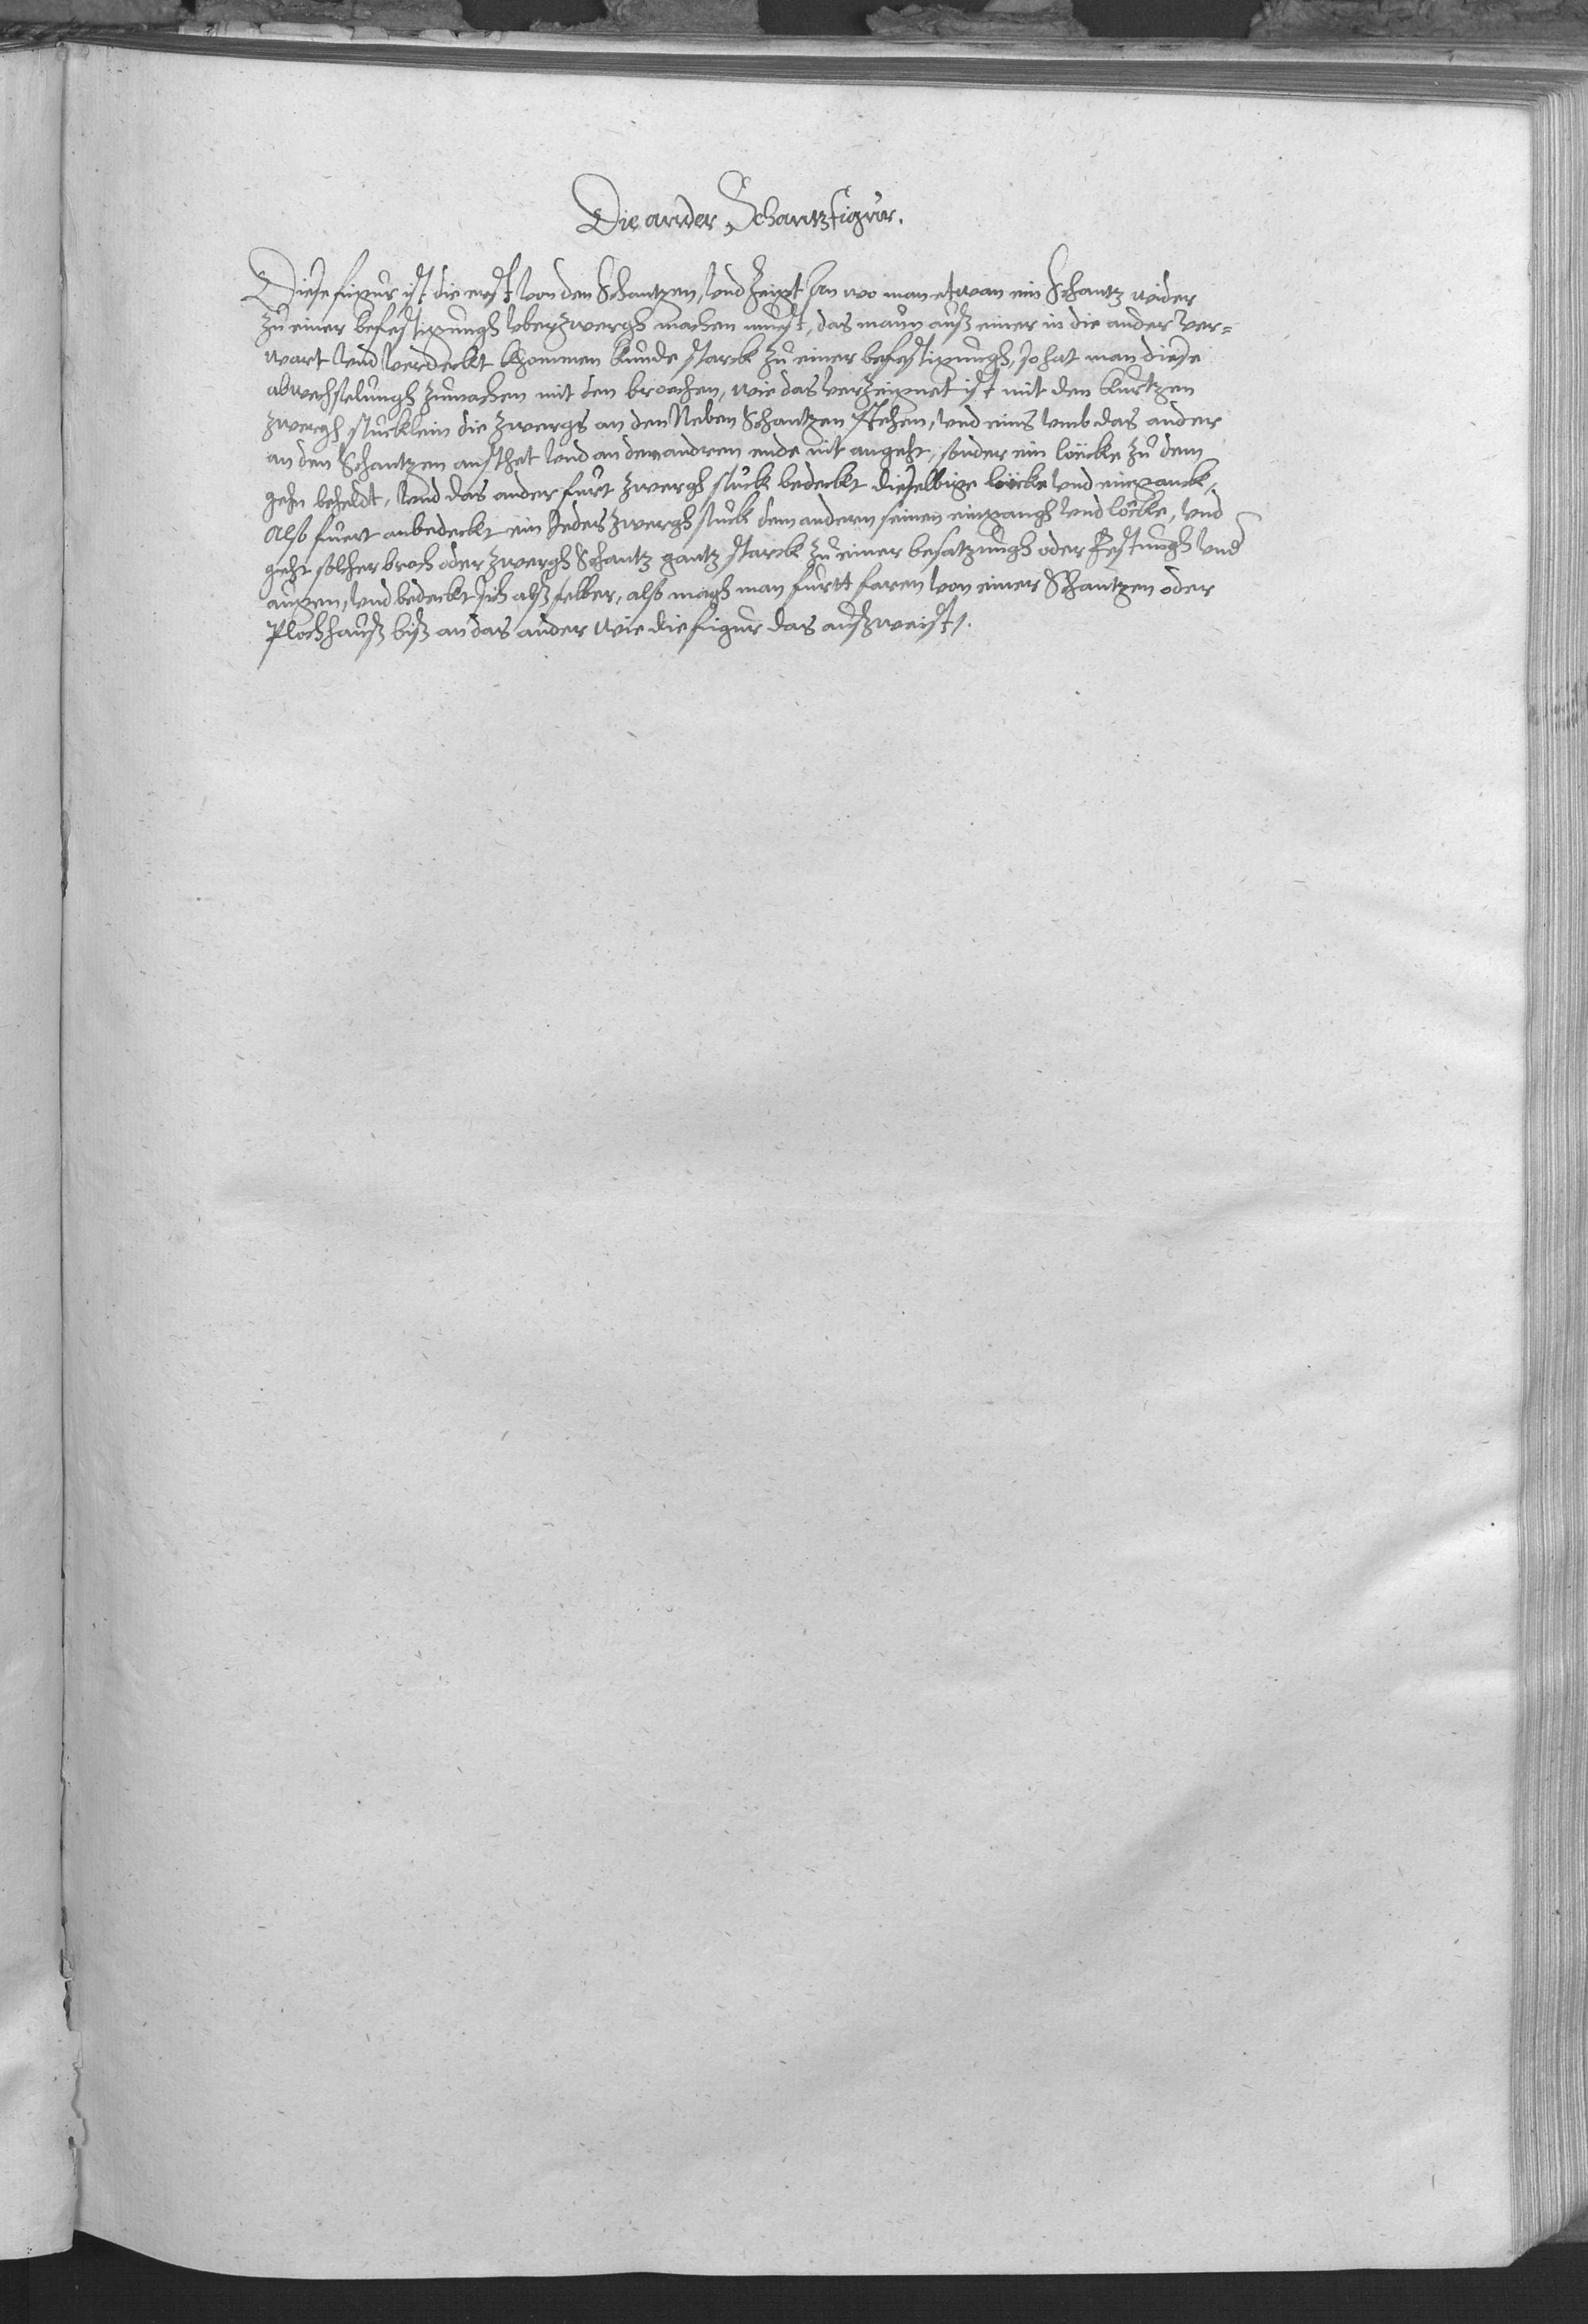 Die ander Schantzfigur.
Diese figur ist die erst von den Schantzen, vnd zeigt an wo man etwan ein Schantz wider
zu einer befestigungh vberzwergh machen must, das mann auß einer in die ander ver=
wart vnd verdeckt khommen kunde starck zu einer befestigungh, so hat man diese
abwechslungh zumachen mit den brochen, wie das verzeignet ist mit den kurtzen
zwergh stucklein die zwergs an den Neben Schantzen stehen, vnd eins vmb das ander
an den Schantzen ansthet vnd an dem andren ende nit angeht, sonder ein löcke zu dem
gehn beheldt, vnd das ander furt zwergh stuck bedeckt dieselbige löcke vnd einganck,
Also fuert anbedeckt ein Jedes zwergh stuck dem andern seinen eingangh vnd löcke, vnd
geht solcher broch oder zwergh Schantz gantz starck zu einer besatzungh oder Festungh vnd
augen, vnd bedeckt sich alß selber, also magh man furtt faren von einer Schantzen oder
Plochhauß biß an das ander wie die figur das außweist.